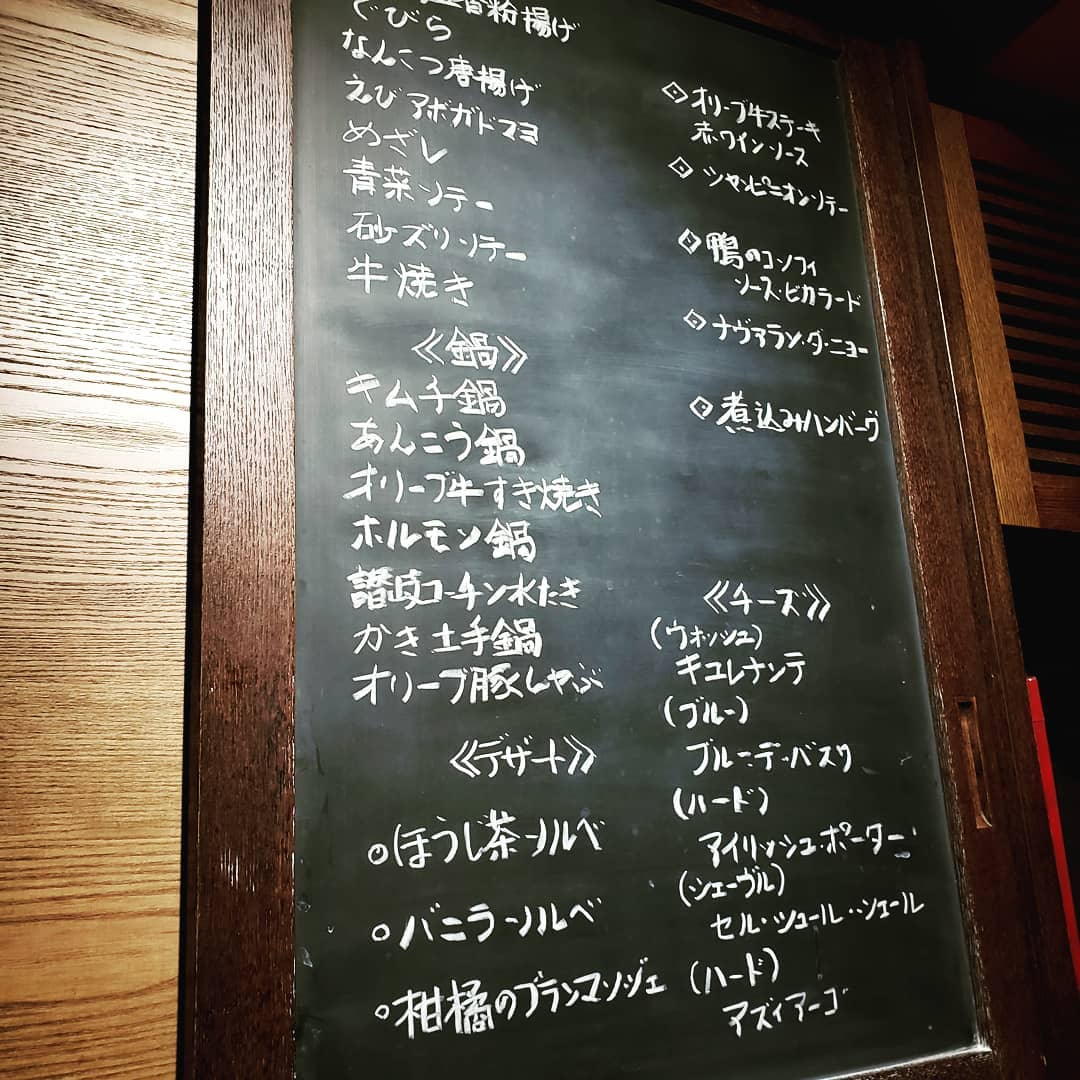 粉揚げ
ぐびら
なんこつ唐揚げ
えびアボガドマヨ
めざし
青菜ソテー
砂ズリソテー
牛焼き
《鍋》
キムチ鍋
あんこう鍋
オリーブ牛すき焼き
ホルモン鍋
讃岐コーチン水たき
かき土手鍋
オリーブ豚しゃぶ
《デザート》
○ほうじ茶ソルベ
○バニラソルベ
○柑橘のブランマンジェ
◇オリーブ牛ステーキ
赤ワインソース
◇シャンピニオンソテー
◇鴨のコンフィ
ソース・ビガラード
◇ナヴァラン・ダ・ニョー
◇煮込みハンバーグ
《チーズ》
(ウォッシュ)
キュレナンテ
(ブルー)
ブルー・デ・バスク
(ハード)
アイリッシュ・ポーター
(シェーヴル)
セル・シュール・シェール
(ハード)
アズィアーゴ